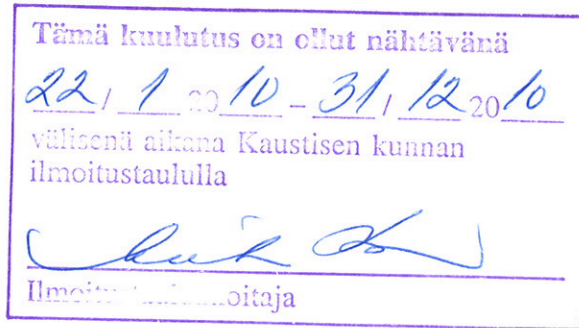 Tämä kuulutus on ollut nähtävänä
22 / 1 2010 - 31 / 12 2010
välisenä aikana Kaustisen kunnan
ilmoitustaululla